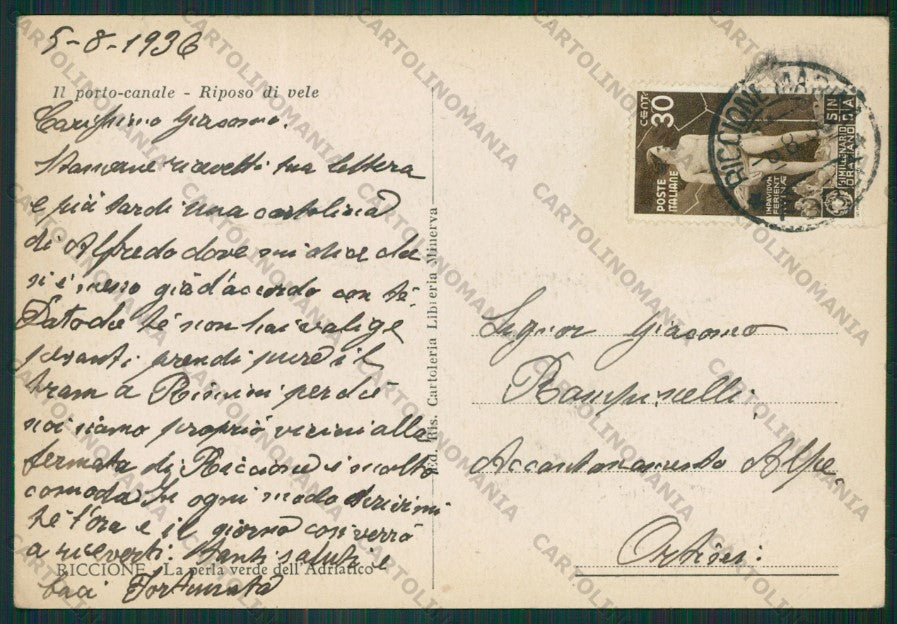 5-8-1936
Il porto-canale - Riposo di vele
Carissimo Giacomo.
Stamane ricevetti tua lettera
e più tardi una cartolina
di Alfredo dove mi dice che
si è messo già d'accordo con te.
Dato che te non hai valige
pesanti, prendi pure il
tram a Rimini perché
noi siamo proprio vicini alla
fermata di Riccione è molto
comoda. In ogni modo scrivimi
te l'ora e il giorno così verrò
a riceverti. Tanti saluti e
baci Fortunata
RICCIONE - La perla verde dell'Adriatico
Ed. Ris. Cartoleria Libreria Minerva
CENT. 30
POSTE
ITALIANE
BIMILLENARIO
ORAZIANO
RICCIONE MARINA
Signor Giacomo
Rampinelli
Accantonamento Alpe
Ortisei
CARTOLINOMANIA